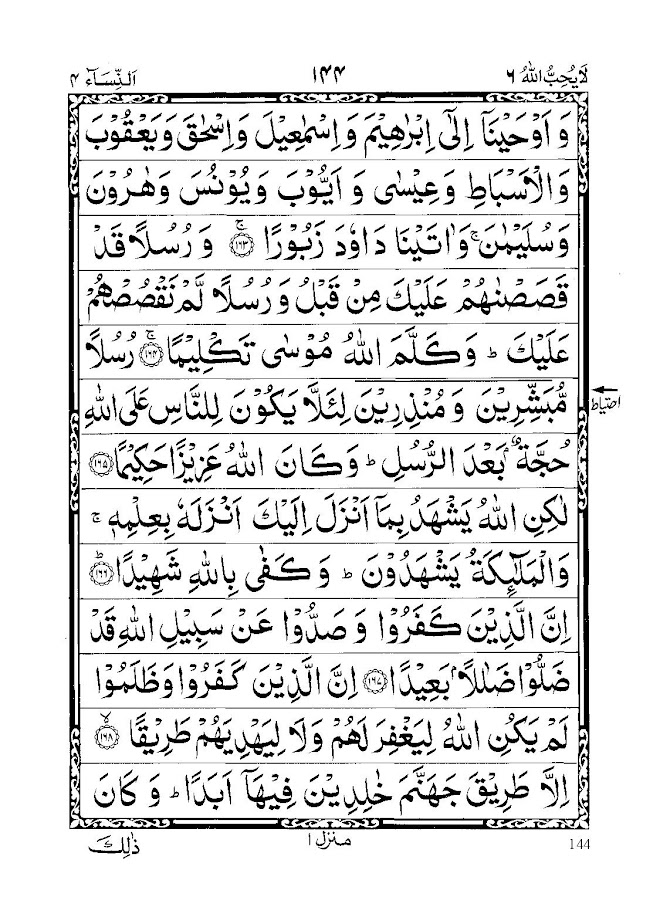 لَا يُحِبُّ اللهُ ٦ ١٤٤ اَلنِّسَآء ٤
وَ اَوْحَيْنَاۤ اِلٰۤى اِبْرٰهِيْمَ وَ اِسْمٰعِيْلَ وَ اِسْحٰقَ وَ يَعْقُوْبَ
وَ الْاَسْبَاطِ وَ عِيْسٰى وَ اَيُّوْبَ وَ يُوْنُسَ وَ هٰرُوْنَ
وَ سُلَيْمٰنَ ۚ وَ اٰتَيْنَا دَاوٗدَ زَبُوْرًا ۚ﴿١٦٣﴾ وَ رُسُلًا قَدْ
قَصَصْنٰهُمْ عَلَيْكَ مِنْ قَبْلُ وَ رُسُلًا لَّمْ نَقْصُصْهُمْ
عَلَيْكَ ؕ وَ كَلَّمَ اللهُ مُوْسٰى تَكْلِيْمًا ۚ﴿١٦٤﴾ رُسُلًا
مُّبَشِّرِيْنَ وَ مُنْذِرِيْنَ لِئَلَّا يَكُوْنَ لِلنَّاسِ عَلَى اللهِ
احتیاط
حُجَّةٌۢ بَعْدَ الرُّسُلِ ؕ وَ كَانَ اللهُ عَزِيْزًا حَكِيْمًا ﴿١٦٥﴾
لٰكِنِ اللهُ يَشْهَدُ بِمَاۤ اَنْزَلَ اِلَيْكَ اَنْزَلَهٗ بِعِلْمِهٖ ۚ
وَ الْمَلٰٓئِكَةُ يَشْهَدُوْنَ ؕ وَ كَفٰى بِاللهِ شَهِيْدًا ؕ﴿١٦٦﴾
اِنَّ الَّذِيْنَ كَفَرُوْا وَ صَدُّوْا عَنْ سَبِيْلِ اللهِ قَدْ
ضَلُّوْا ضَلٰلًاۢ بَعِيْدًا ﴿١٦٧﴾ اِنَّ الَّذِيْنَ كَفَرُوْا وَ ظَلَمُوْا
لَمْ يَكُنِ اللهُ لِيَغْفِرَ لَهُمْ وَ لَا لِيَهْدِيَهُمْ طَرِيْقًا ۙ﴿١٦٨﴾
اِلَّا طَرِيْقَ جَهَنَّمَ خٰلِدِيْنَ فِيْهَاۤ اَبَدًا ؕ وَ كَانَ
144 منزل ١ ذٰلِكَ